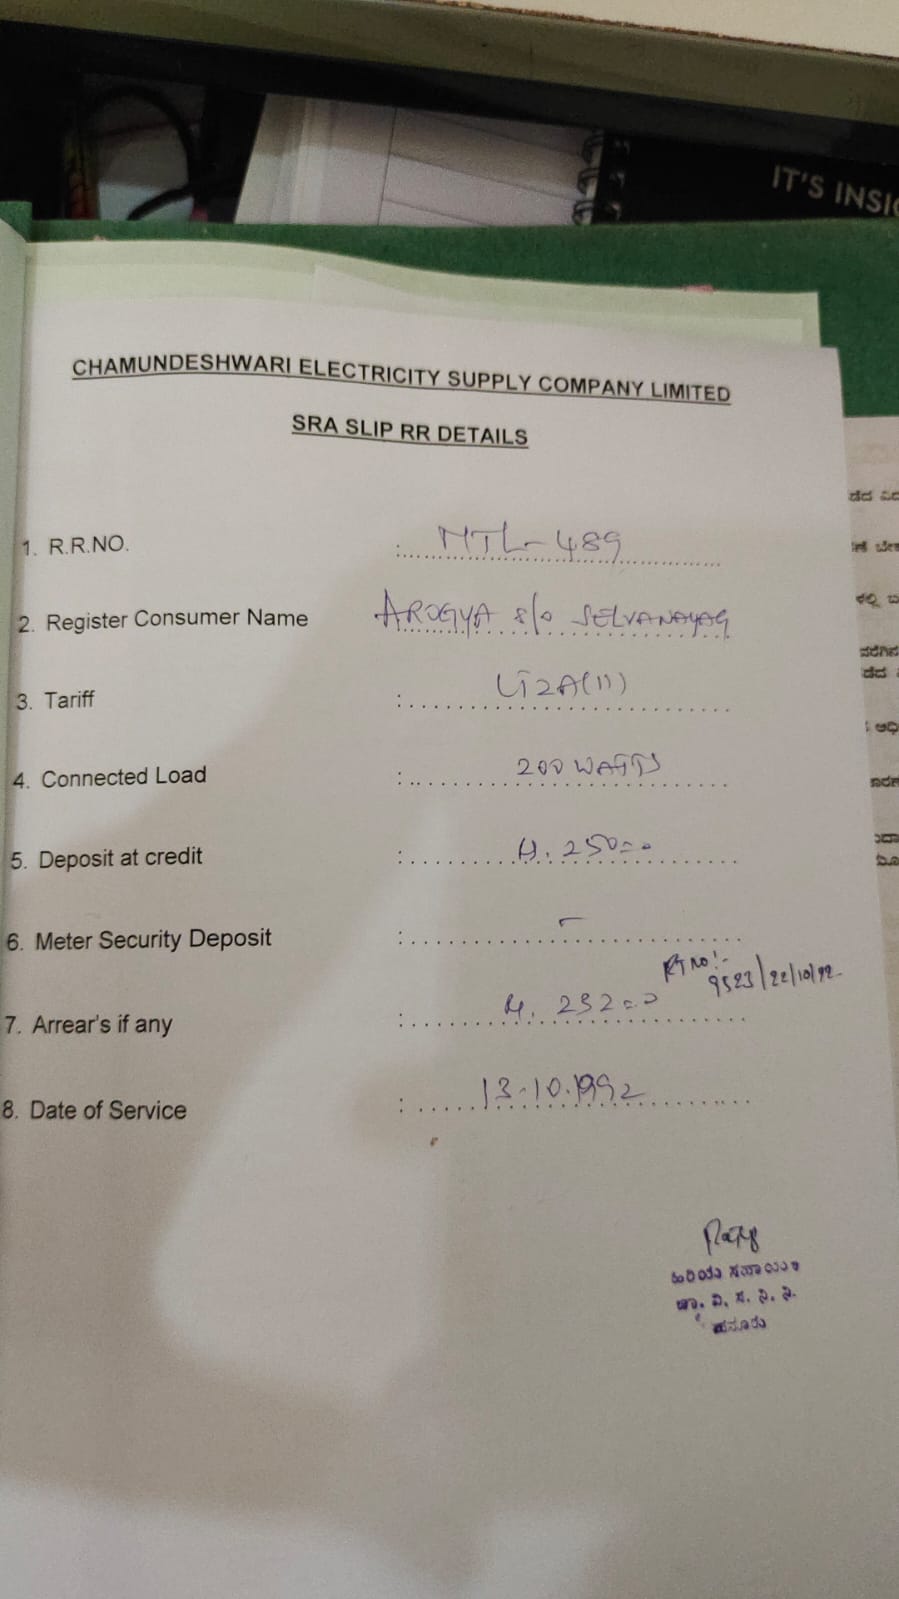 IT'S INSI
CHAMUNDESHWARI ELECTRICITY SUPPLY COMPANY LIMITED
SRA SLIP RR DETAILS
1. R.R.NO. : MTL-489
2. Register Consumer Name AROGYA S/o SELVANAYAG
3. Tariff : LT2A(11)
4. Connected Load : 200 WATTS
5. Deposit at credit : 250=00
6. Meter Security Deposit : -
RT NO:-
9523/22/10/92
7. Arrear's if any : 232=00
8. Date of Service : 13-10-1992
ಹಿರಿಯ ಸಹಾಯಕ
ಚಾ. ವಿ. ಸ. ನಿ. ನಿ.
ಹನೂರು